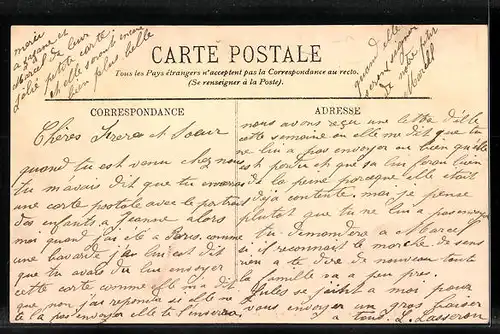 merci
a Suzanne et
Marcel de leur
jolie petite carte
et elle sont encore
bien plus belle
quand elle
serons
de notre petit
Marcel
CARTE POSTALE
Tous les Pays étrangers n'acceptent pas la Correspondance au recto.
(Se renseigner à la Poste).
CORRESPONDANCE
Chères Frere et Soeur
quand tu est venu chez nous
tu mavais dit que tu
une carte postale avec le portrait
des enfants a Jeanne alors
moi quand j'ai été a Paris comme
une bavarde j'ai lui est dit
que tu avais du lui envoyer
cette carte comme elle m'a dit
que non j'ai repondu si elle ne
la pas envoyer elle te l'enverra
ADRESSE
nous avons reçu une lettre d'elle
cette semaine ou elle me dit que tu
ne lui a pas envoyer ou bien qu'elle
est perdu et que sa lui ferai bien
de la peine porceque elle était
déja contente. moi je pense
plutot que tu ne lui a pas envoyer
tu demandera a Marcel
si il reconnait le marché de sens
rien a te dire de nouveau toute
la famille va a peu pres.
Jules se joint a moi pour
vous envoyer un gros baiser
a tous. L. Lasseron